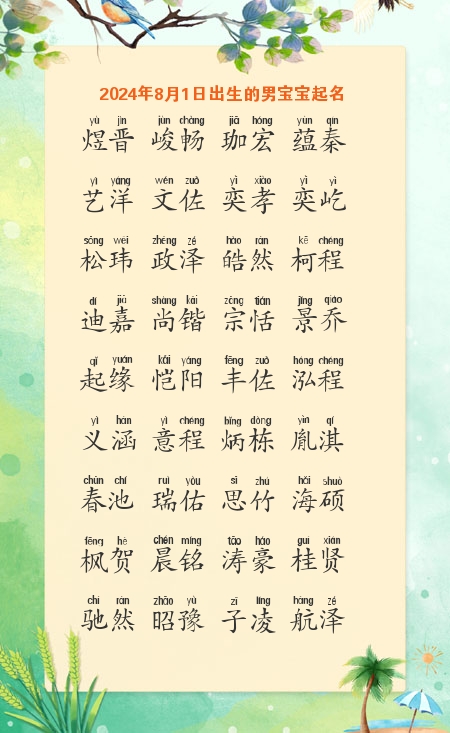 2024年8月1日出生的男宝宝起名
yù jìn jùn chàng jiā hóng yùn qín
煜晋 峻畅 珈宏 蕴秦
yì yáng wén zuǒ yì xiào yì yì
艺洋 文佐 奕孝 奕屹
sōng wěi zhèng zé hào rán kē chéng
松玮 政泽 皓然 柯程
dí jiā shàng kǎi zōng tián jǐng qiáo
迪嘉 尚锴 宗恬 景乔
qǐ yuán kǎi yáng fēng zuǒ hóng chéng
起缘 恺阳 丰佐 泓程
yì hán yì chéng bǐng dòng yìn qí
义涵 意程 炳栋 胤淇
chūn chí ruì yòu sī zhú hǎi shuò
春池 瑞佑 思竹 海硕
fēng hè chén míng tāo háo guì xián
枫贺 晨铭 涛豪 桂贤
chí rán zhāo yù zǐ líng háng zé
驰然 昭豫 子凌 航泽